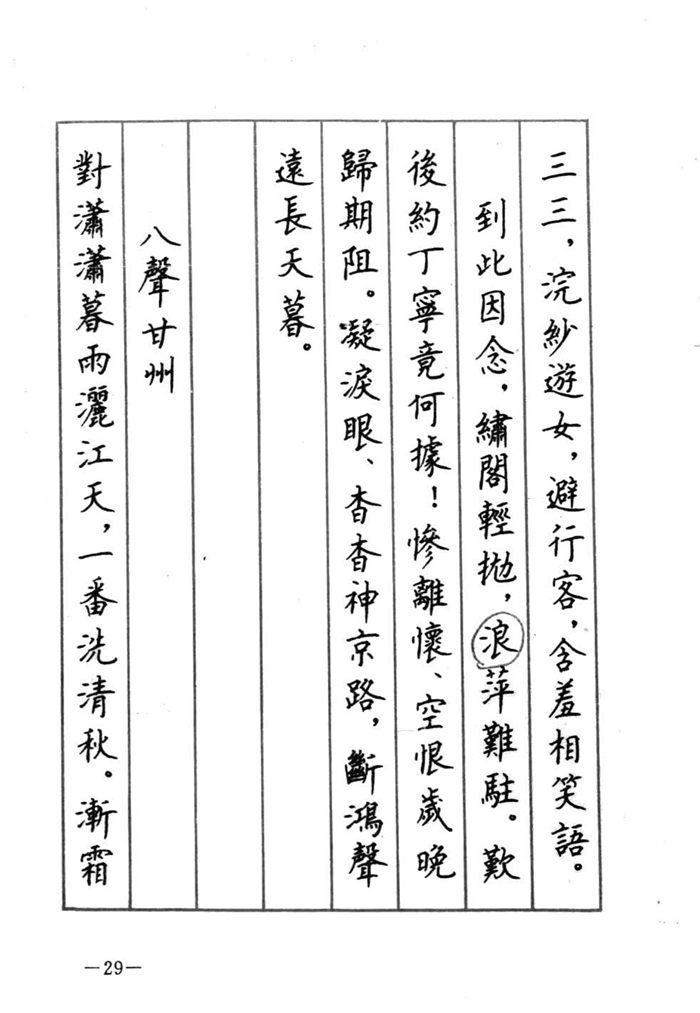 三三，浣紗遊女，避行客，含羞相笑語。
到此因念，繡閣輕拋，浪萍難駐。歎
後約丁寧竟何據！慘離懷、空恨歲晚
歸期阻。凝淚眼、杳杳神京路，斷鴻聲
遠長天暮。
八聲甘州
對瀟瀟暮雨灑江天，一番洗清秋。漸霜
—29—